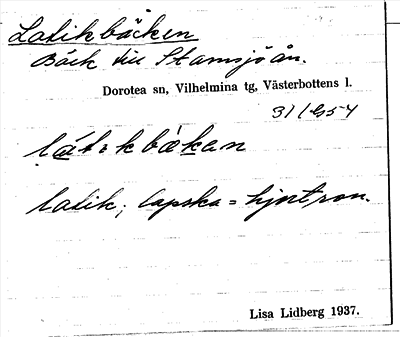 Latikbäcken
Bäck till Stamsjöån.
Dorotea sn, Vilhelmina tg, Västerbottens l.
låtikbäkən
latik, lapska = hjortron.
Lisa Lidberg 1937.